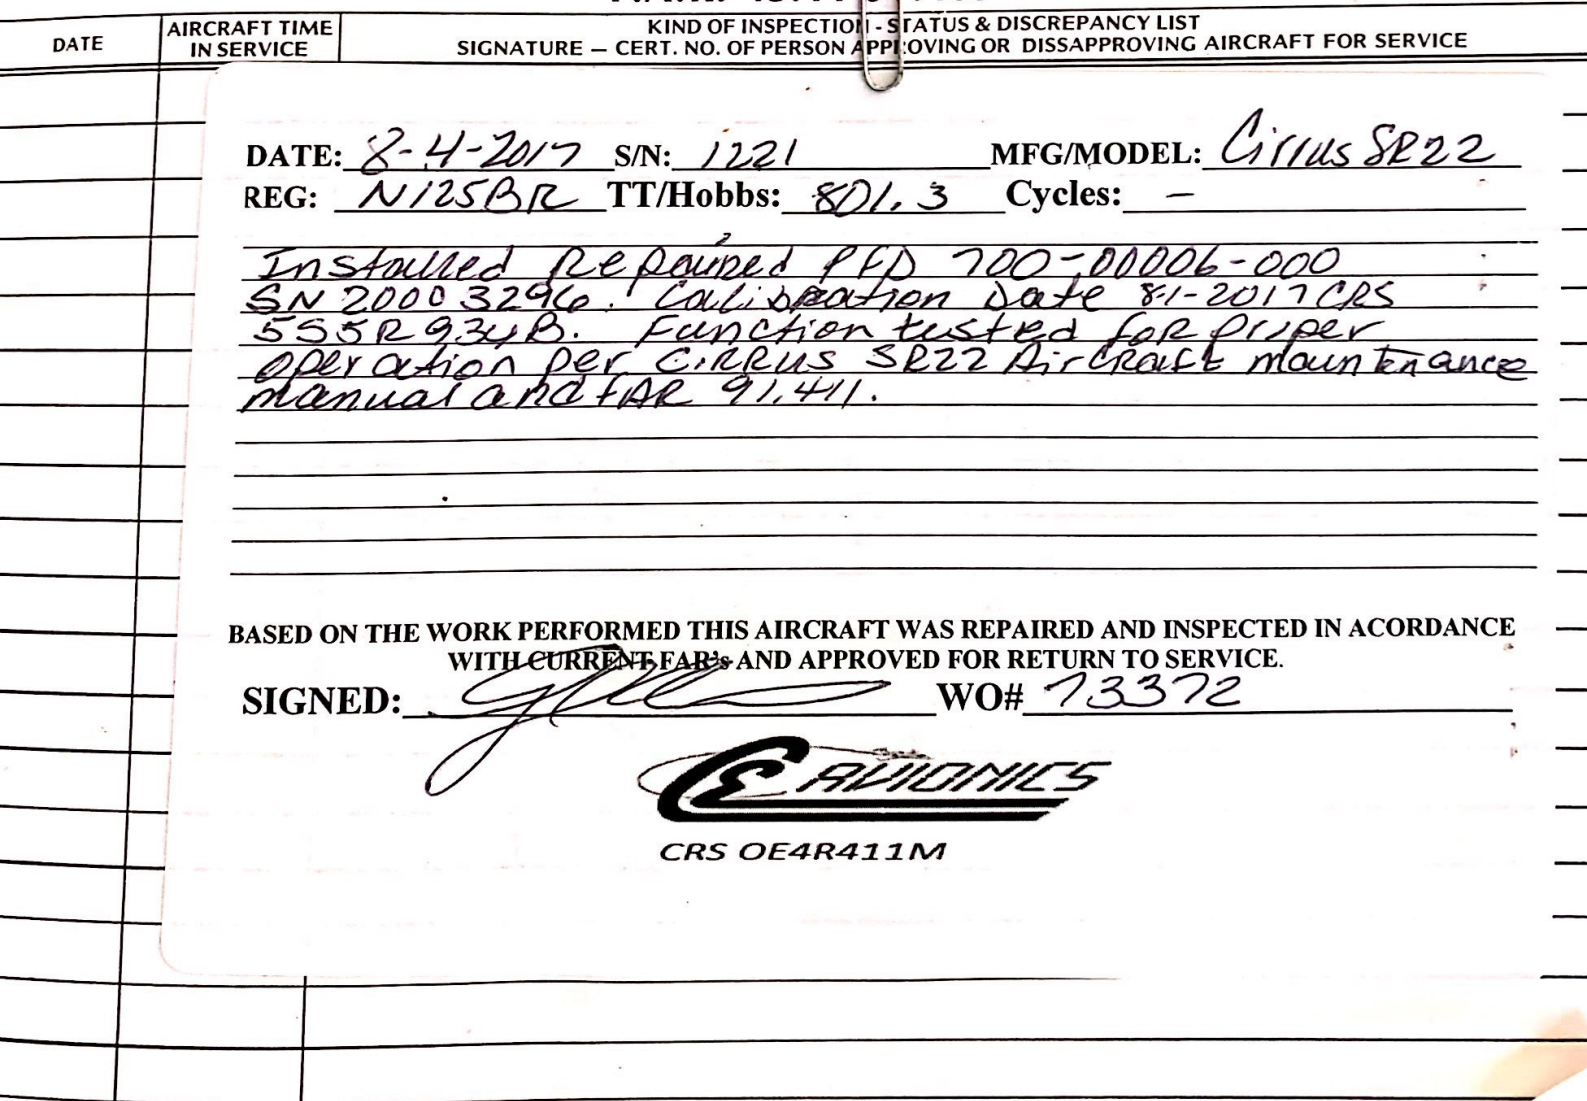 DATE
AIRCRAFT TIME
IN SERVICE
KIND OF INSPECTION - STATUS & DISCREPANCY LIST
SIGNATURE — CERT. NO. OF PERSON APPROVING OR DISSAPPROVING AIRCRAFT FOR SERVICE
DATE: 8-4-2017 S/N: 1221 MFG/MODEL: Cirrus SR22
REG: N125BR TT/Hobbs: 801.3 Cycles: —
Installed Repaired PFD 700-00006-000
SN 20003296. Calibration Date 8-1-2017 CRS
5S5R934B. Function tested for proper
operation per CIRRUS SR22 Aircraft maintenance
manual and FAR 91.411.
BASED ON THE WORK PERFORMED THIS AIRCRAFT WAS REPAIRED AND INSPECTED IN ACORDANCE
WITH CURRENT FAR's AND APPROVED FOR RETURN TO SERVICE.
SIGNED: WO# 73372
CE AVIONICS
CRS OE4R411M